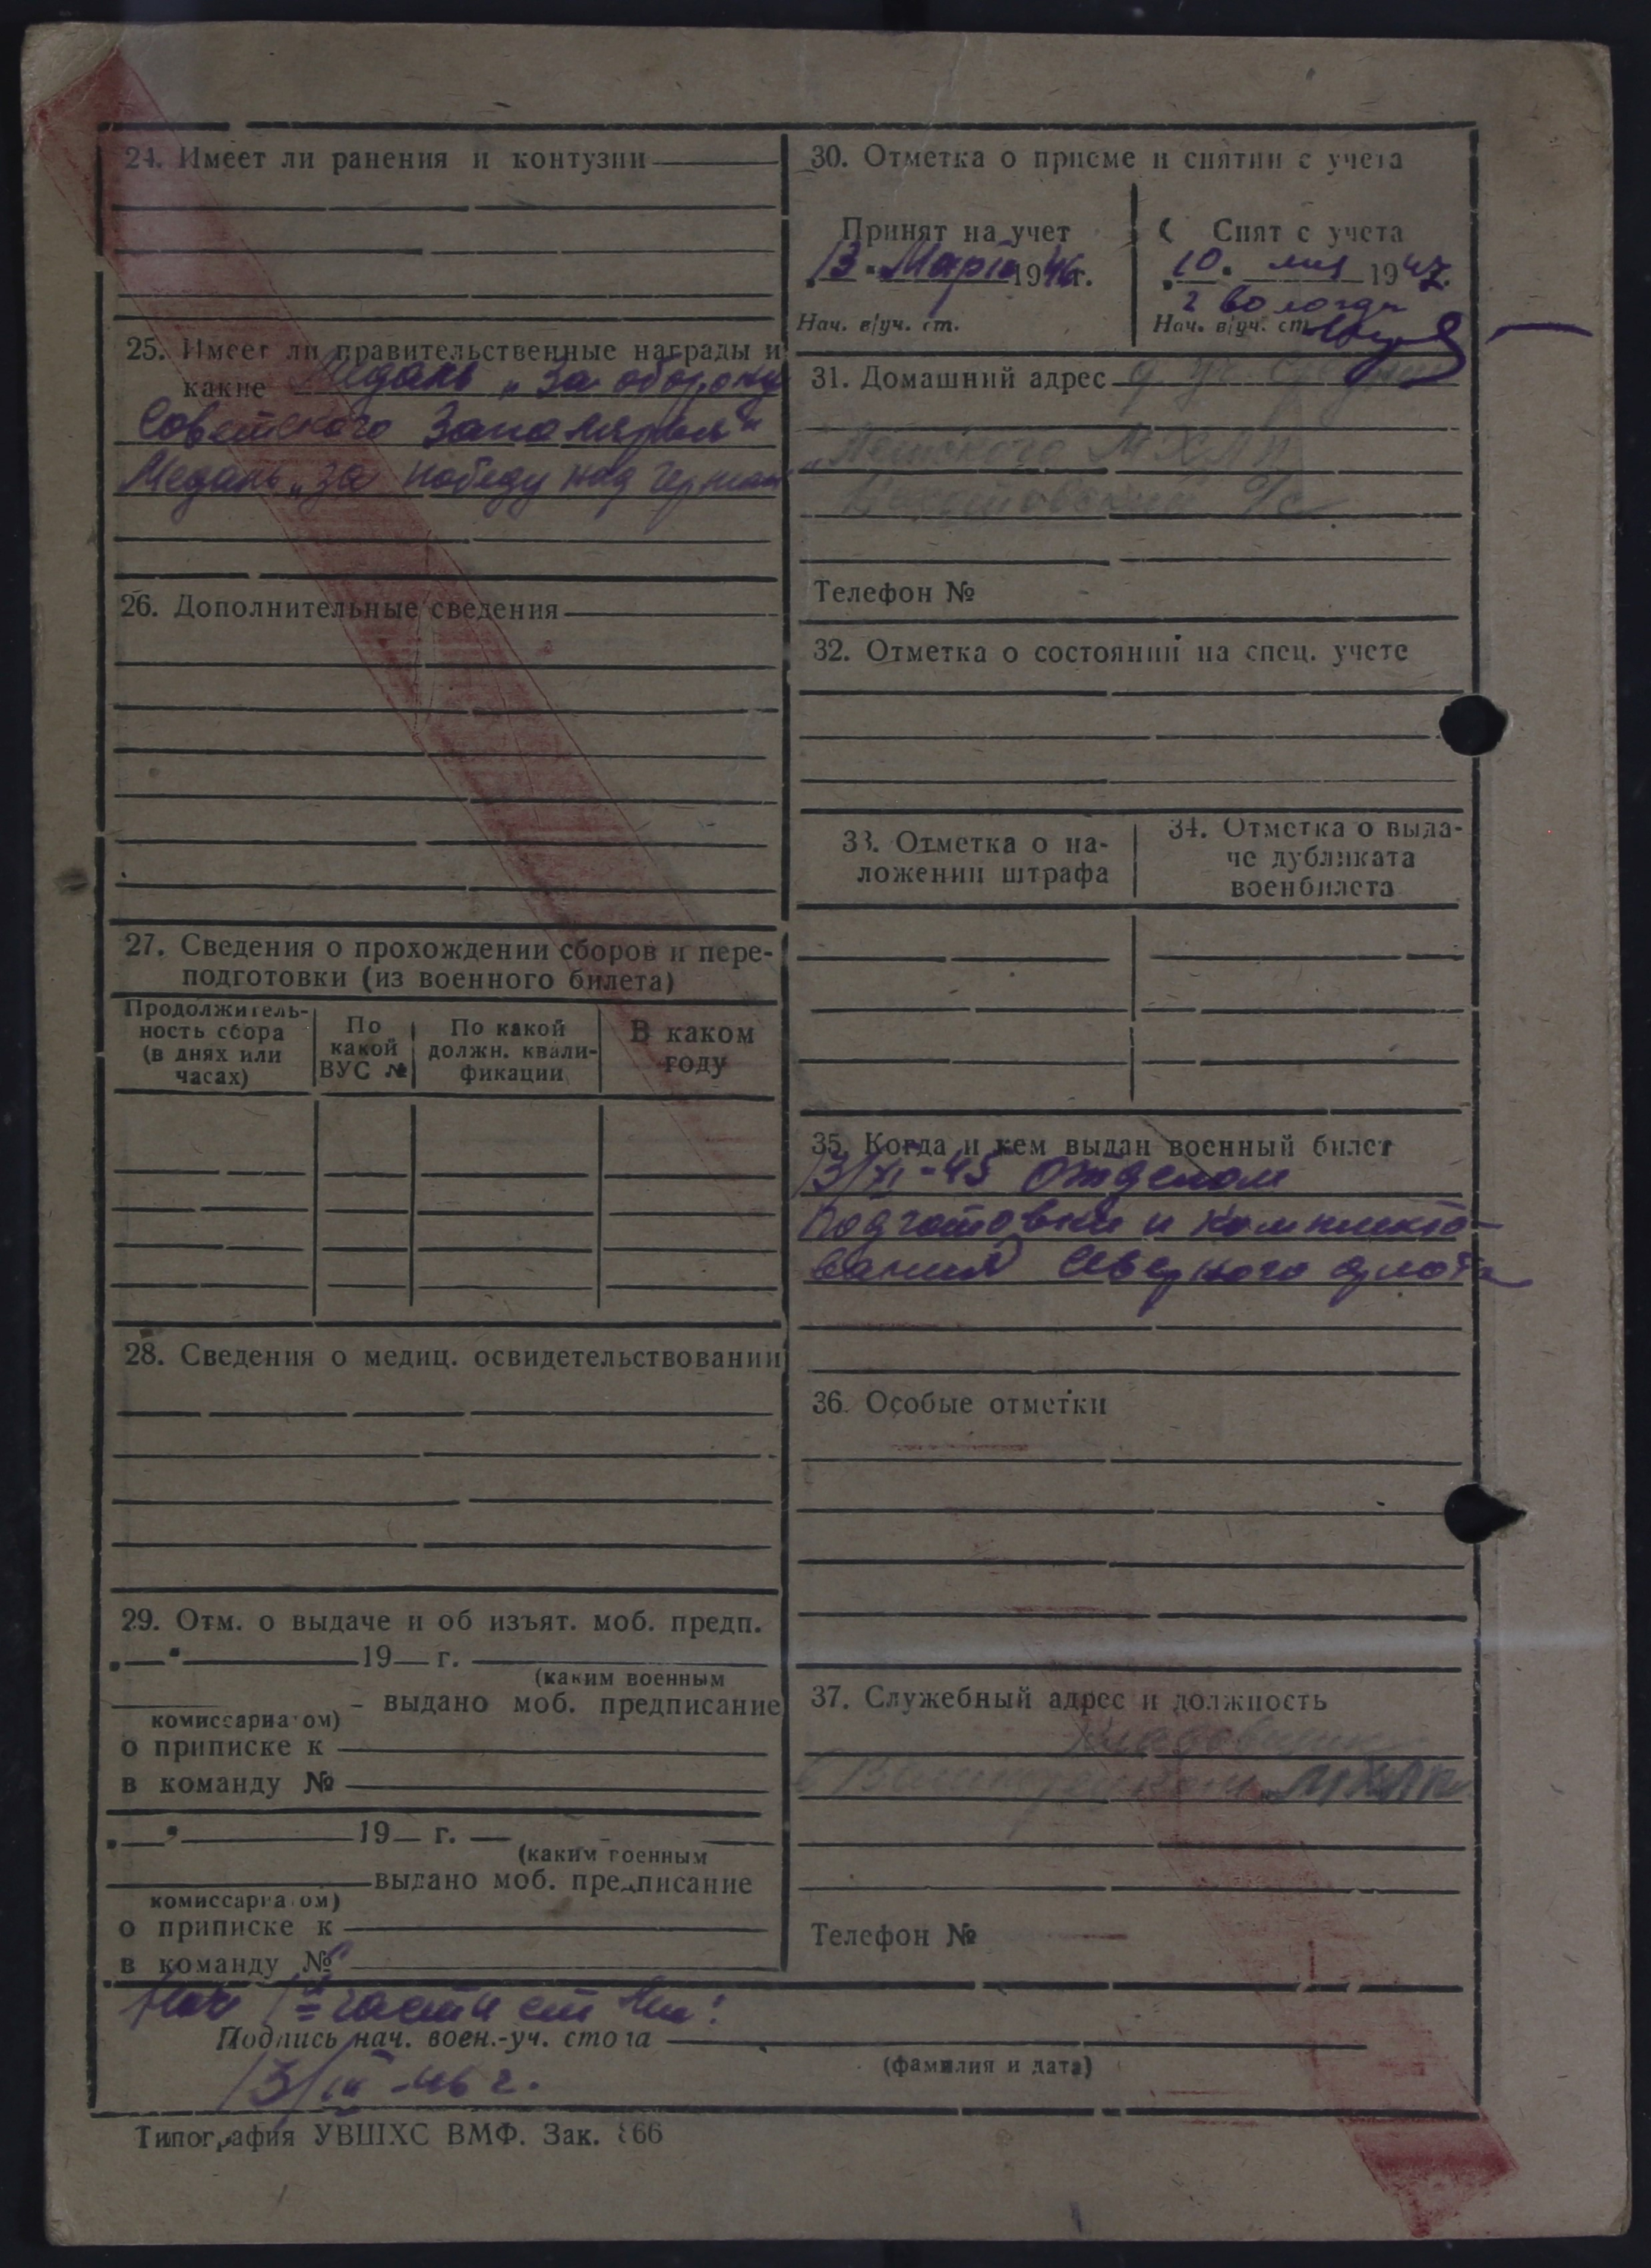 24. Имеет ли ранения и контузии
25. Имеет ли правительственные награды и
какие Медаль „За оборону
Советского Заполярья“
Медаль „За победу над Герман
26. Дополнительные сведения
27. Сведения о прохождении сборов и пере-
подготовки (из военного билета)
Продолжитель-
ность сбора
(в днях или
часах)
По
какой
ВУС №
По какой
должн. квали-
фикации
В каком
году
28. Сведения о медиц. освидетельствовании
29. Отм. о выдаче и об изъят. моб. предп.
19 г.
(каким военным
выдано моб. предписание
комиссариатом)
о приписке к
в команду №
19 г.
(каким военным
выдано моб. предписание
комиссариатом)
о приписке к
в команду №
30. Отметка о приеме и снятии с учета
Принят на учет
13 Марта 1946г.
Нач. в/уч. ст.
Снят с учета
10 мая 1947.
г Вологда
Нач. в/уч. ст.
31. Домашний адрес
МХЛП
Телефон №
32. Отметка о состоянии на спец. учете
33. Отметка о на-
ложении штрафа
34. Отметка о выда-
че дубликата
военбилета
35. Когда и кем выдан военный билет
13/XI-45 Отделом
подготовки и комплекто-
вания Северного флота
36. Особые отметки
37. Служебный адрес и должность
Кладовщик
в МХЛП
Телефон №
Нач 1й части ст
Подпись нач. воен.-уч. стола
(фамилия и дата)
13/III-46 г.
Типография УВШХС ВМФ. Зак. 866